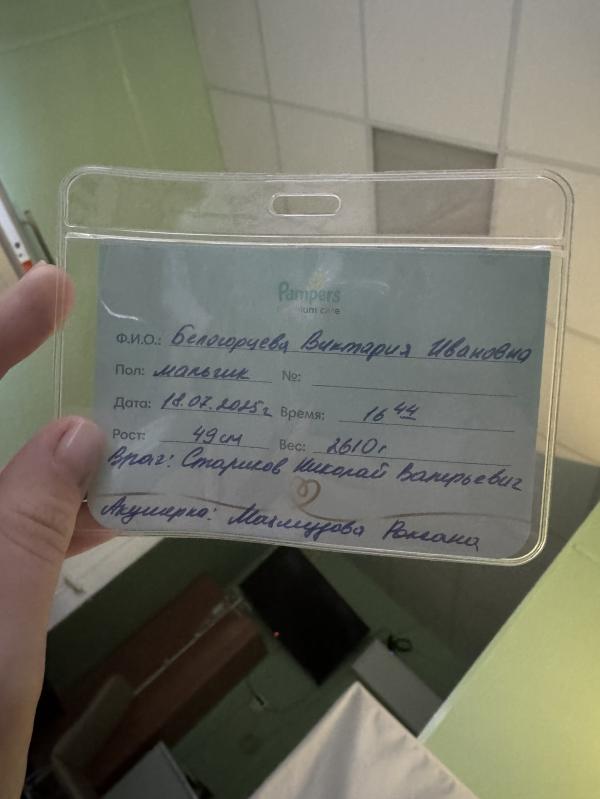 Pampers
premium care
Ф.И.О.: Белогорцева Виктария Ивановна
Пол: мальчик №:
Дата: 18.07.2025г Время: 16 44
Рост: 49см Вес: 2610г
Врач: Стариков Николай Валерьевич
Акушерка: Махмудова Роксана